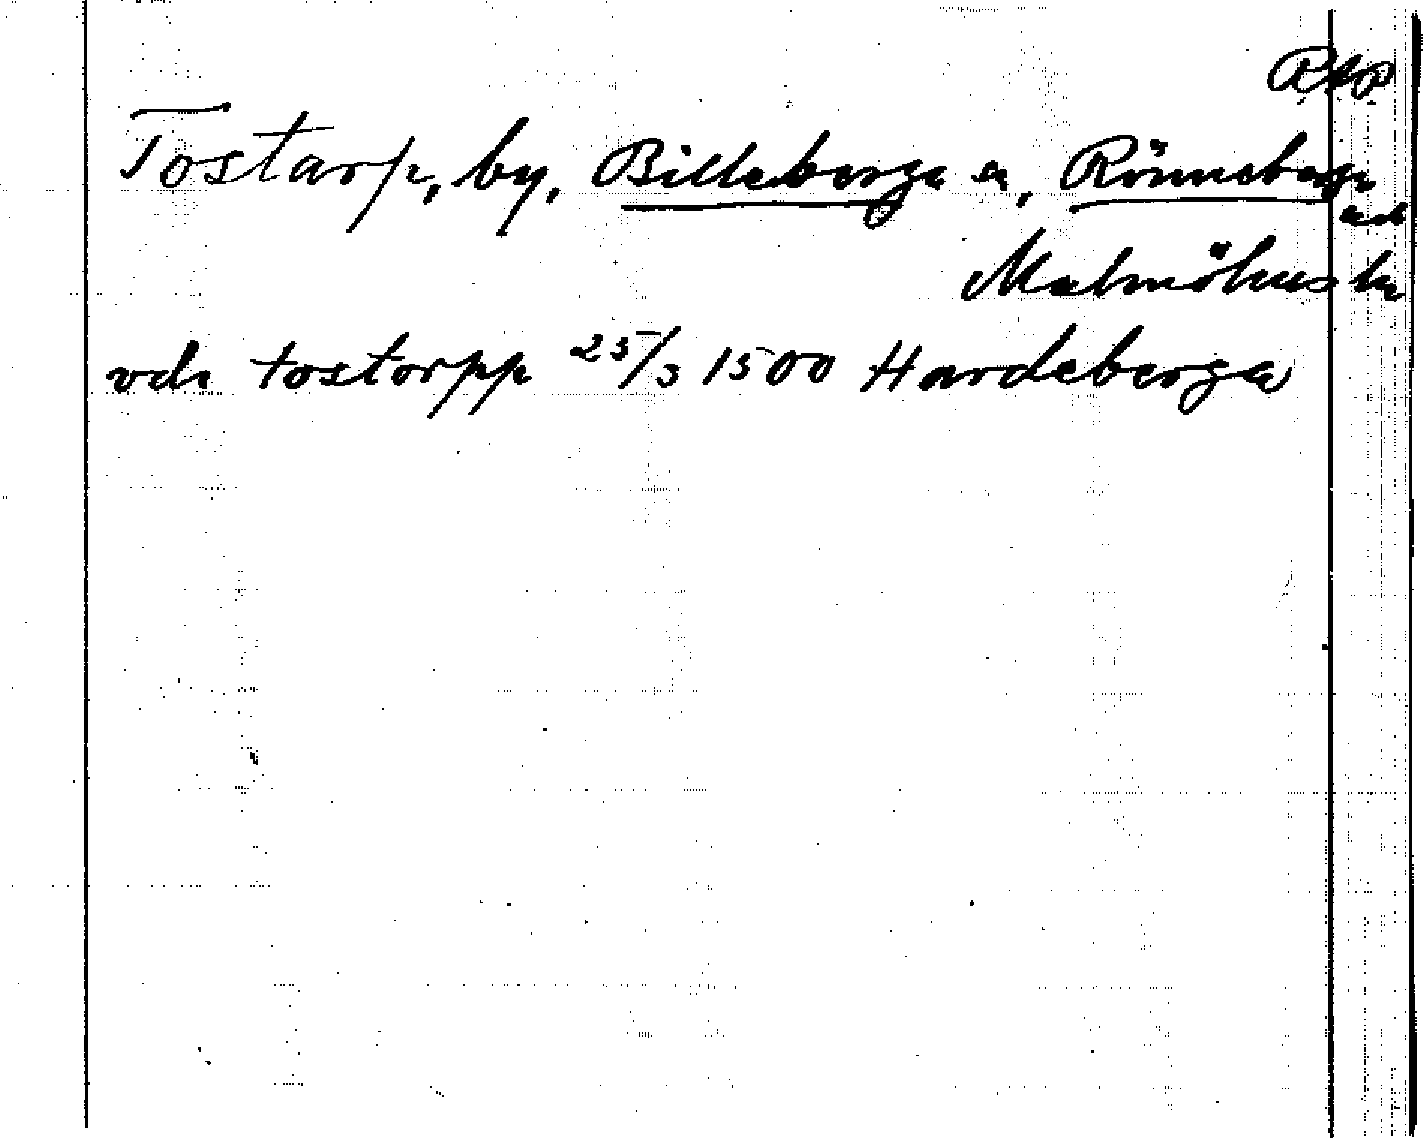 RAp
Tostarp, by, Billeberga sn, Rönneberga
hd
Malmöhus ln
vdr tostorpp 25/3 1500 Hardeberga